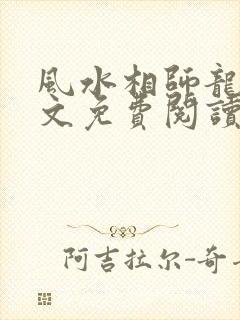 風水相師龍
文免費閱讀
阿吉拉尔-奇